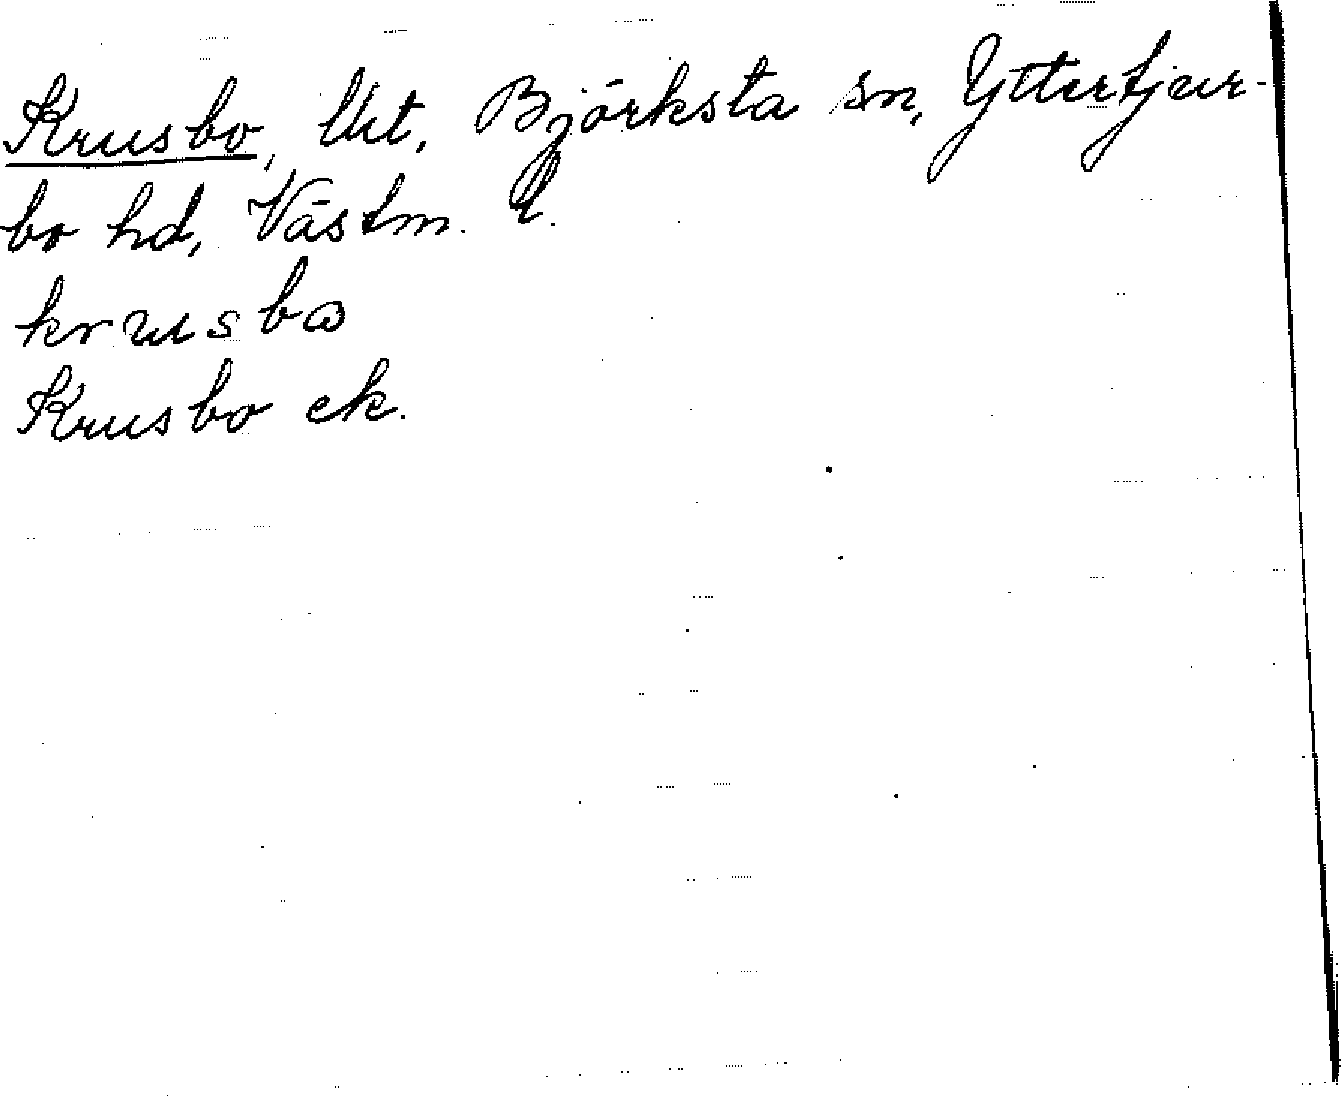 Krusbo, Utt, Björksta sn, Yttertjur-
bo hd, Västm. l.
krusbo
Krusbo ek.